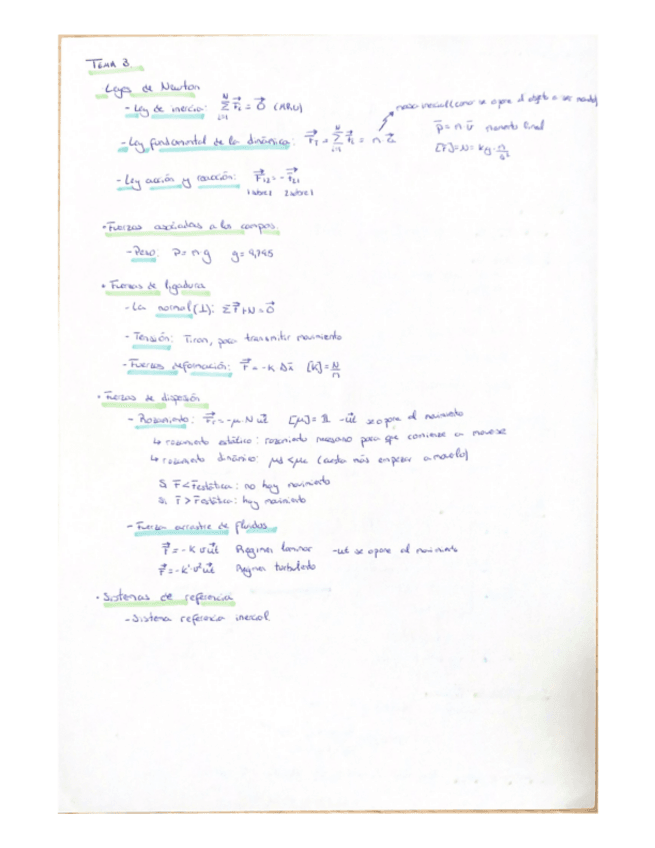 TEMA 3
Leyes de Newton
- Ley de inercia: $\sum_{i=1}^{N} \vec{F}_i = \vec{0}$ (MRU)
masa inercial (como se opone el objeto a ser movido)
- Ley fundamental de la dinámica: $\vec{F}_T = \sum_{i=1}^{N} \vec{F}_i = m \vec{a}$
$\vec{p} = m \vec{v}$ momento lineal
[F] = N = kg · m/s²
- Ley acción y reacción: $\vec{F}_{12} = -\vec{F}_{21}$
1 sobre 2 2 sobre 1
• Fuerzas asociadas a los campos
- Peso: P = m·g
• Fuerzas de ligadura
- La normal (⊥): $\Sigma \vec{F} + N = \vec{0}$
- Tensión: Tiran, para transmitir movimiento
- Fuerzas deformación: $\vec{F} = -K \Delta\vec{}$ [K] = N/m
• Fuerzas de
- Rozamiento: $\vec{F}_r = -\mu N \vec{u}_t$ [μ] = 1 $-\vec{u}_t$ se opone al movimiento
↳ rozamiento estático: rozamiento necesario para que comience a moverse
↳ rozamiento dinámico: (cuesta más empezar a moverlo)
Si F < Festática: no hay movimiento
Si F > Festática: hay movimiento
- Fuerza arrastre de fluidos
$\vec{F} = -K v \vec{u}_t$ Régimen laminar -ut se opone al movimiento
$\vec{F} = -K' v^2 \vec{u}_t$ Régimen turbulento
• Sistemas de referencia
- Sistema referencia inercial